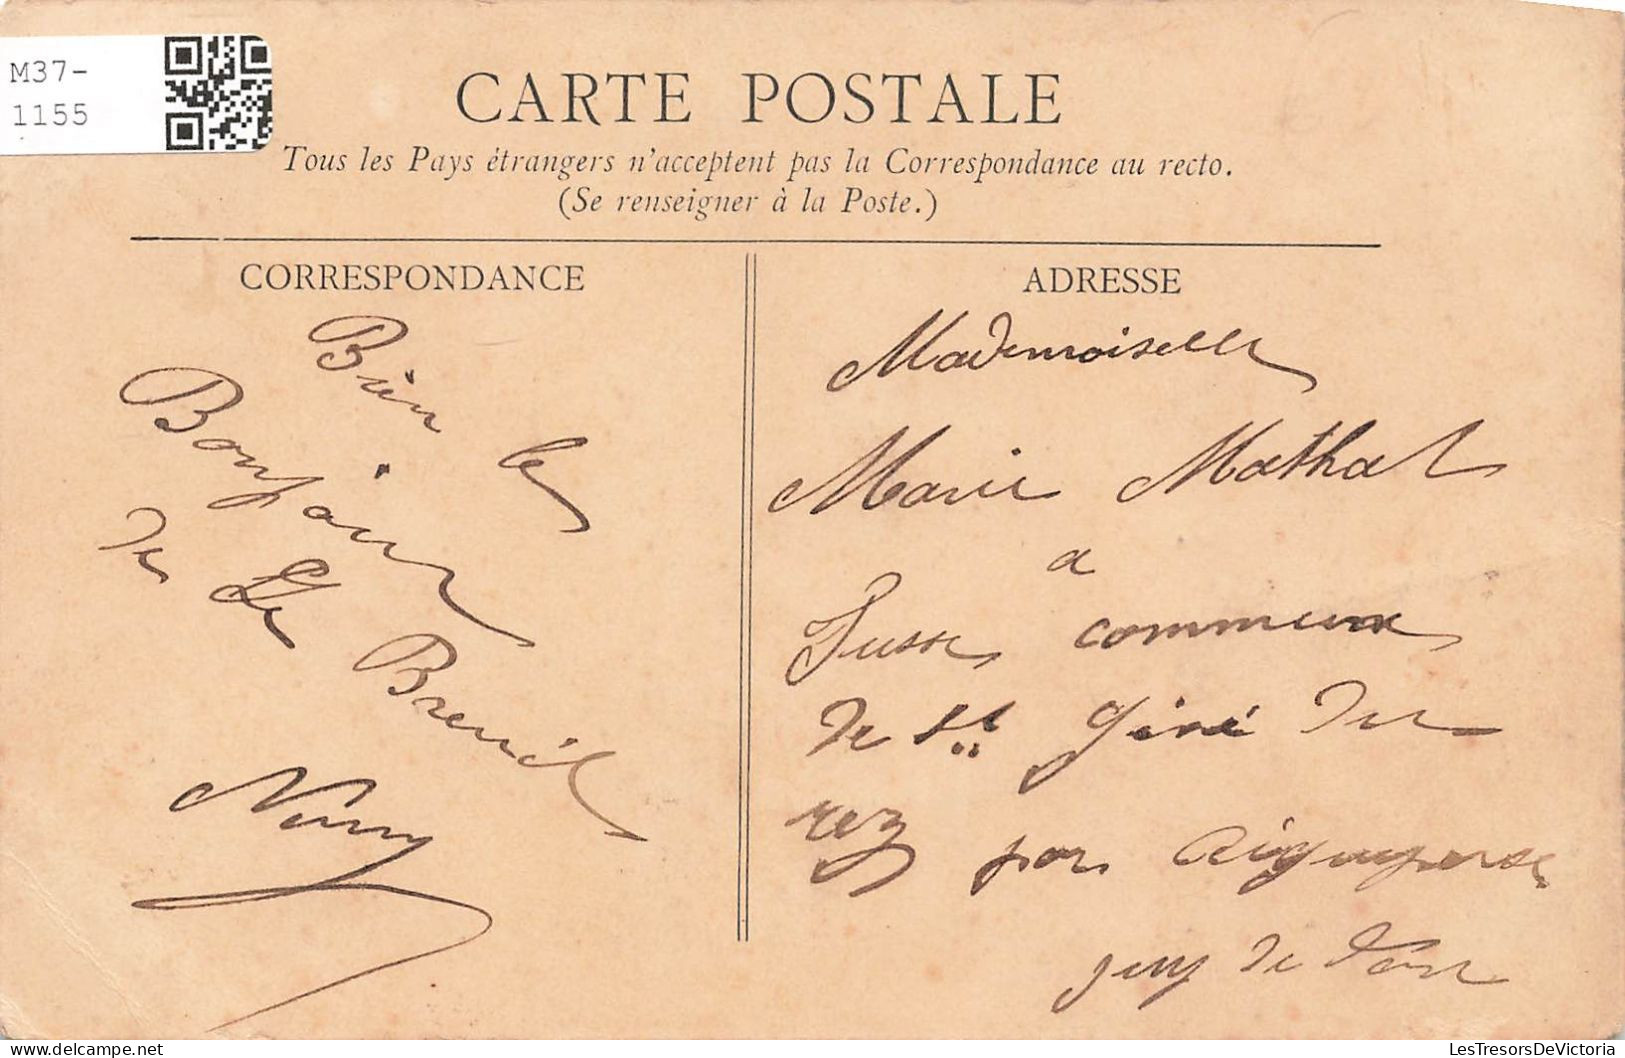 M37-
1155
CARTE POSTALE
Tous les Pays étrangers n'acceptent pas la Correspondance au recto.
(Se renseigner à la Poste.)
CORRESPONDANCE
Bien le
Bonjour
de Le Breuil
ADRESSE
Mademoiselle
Marie Mathat
a
commune
de St Giné du
rez par Aigueperse
puy de dom
LesTresorsDeVictoria